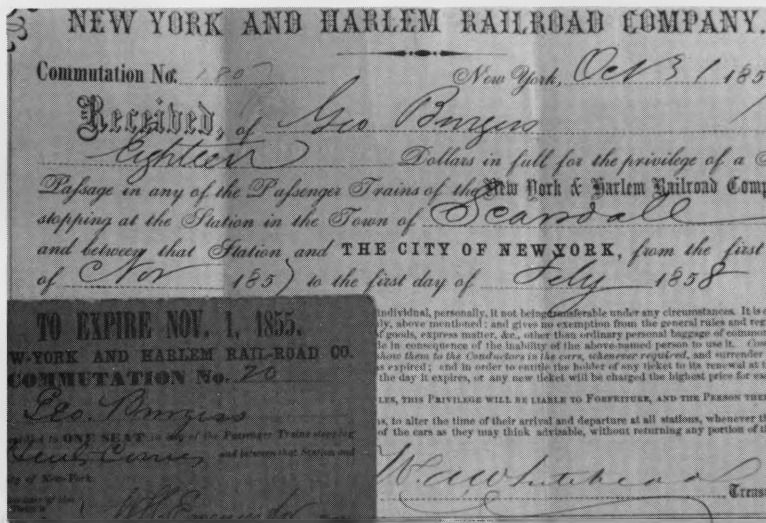 NEW YORK AND HARLEM RAILROAD COMPANY.
Commutation No. 1807 New York, Oct 31 185
Received, of Geo Burgess
Eighteen Dollars in full for the privilege of a
Passage in any of the Passenger Trains of the New York & Harlem Railroad Comp
stopping at the Station in the Town of Scarsdale
and between that Station and THE CITY OF NEW YORK, from the first
of Nov 1857 to the first day of Feby 1858
individual, personally, it not being transferable under any circumstances. It is
ly, above mentioned; and gives no exemption from the general rules and reg
of goods, express matter, &c., other than ordinary personal baggage of commut
le in consequence of the inability of the above-named person to use it.
show them to the Conductors in the cars, whenever required, and surrender
as expired; and in order to entitle the holder of any ticket to its renewal at
the day it expires, or any new ticket will be charged the highest price for
LES, THIS PRIVILEGE WILL BE LIABLE TO FORFEITURE, AND THE PERSON
ns, to alter the time of their arrival and departure at all stations, whenever th
of the cars as they may think advisable, without returning any portion of th
W. A. Whitehead
Treas
TO EXPIRE NOV. 1, 1855.
W-YORK AND HARLEM RAIL-ROAD CO.
COMMUTATION No. 20
Geo. Burgess
ONE SEAT in any of the Passenger Trains stopping
and between that Station and
ity of New-York.